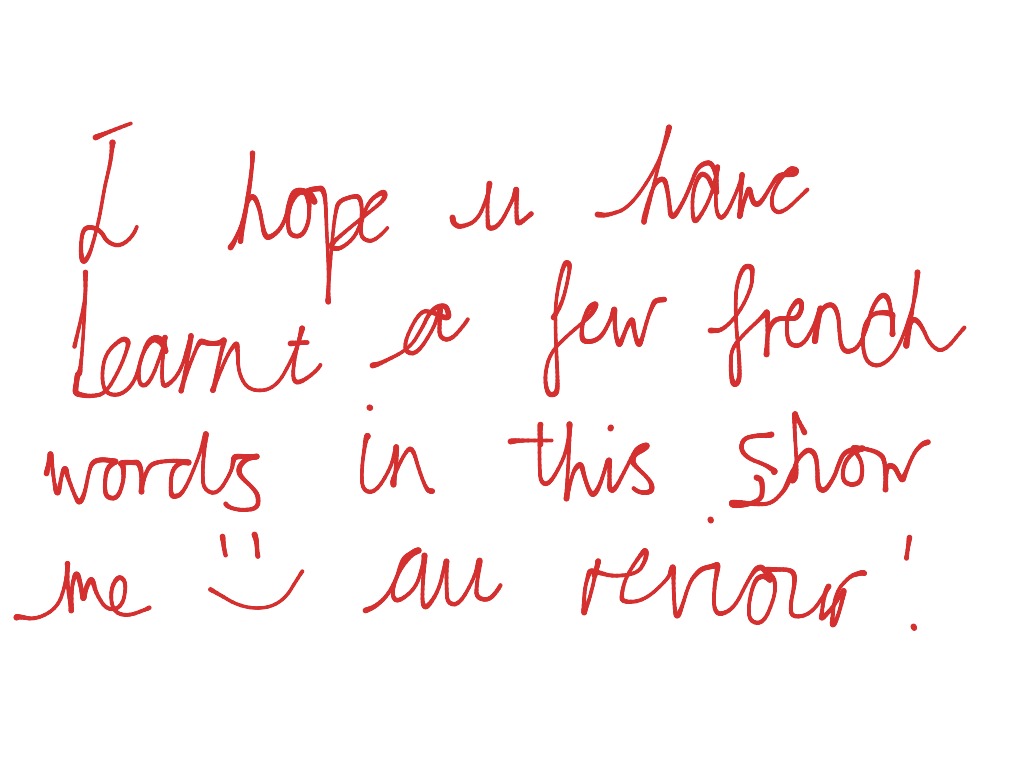 I hope u have
learnt a few french
words in this show
me :) au reviour!